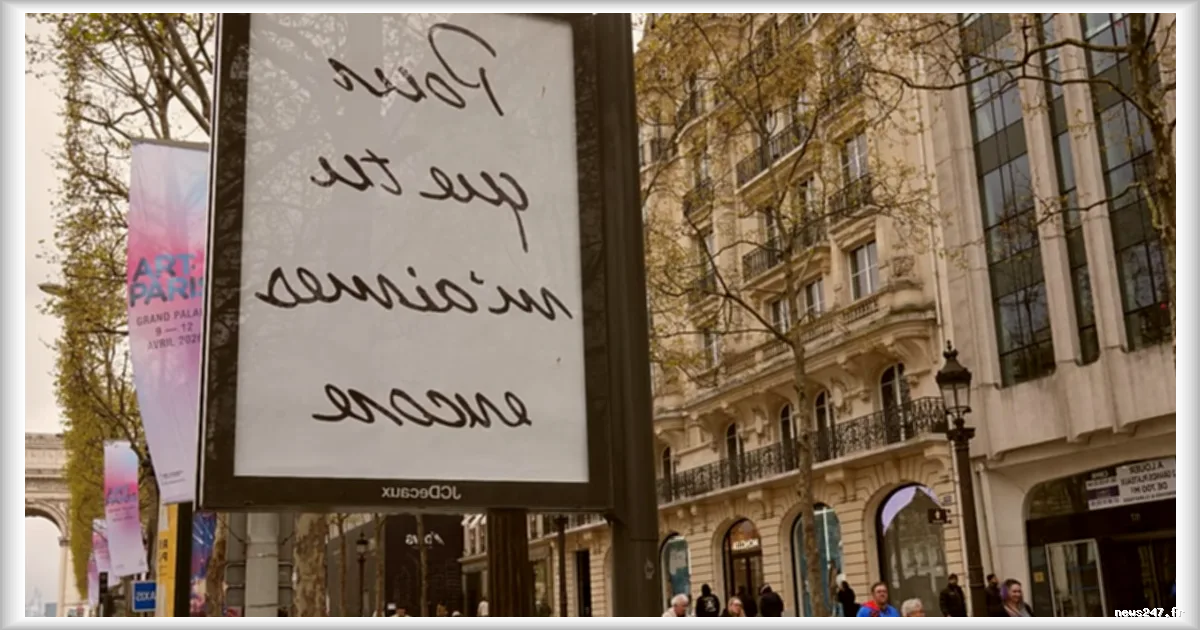 Pour
que tu
m'aimes
encore
JCDecaux
ART
PARIS
GRAND PALAI
9 — 12
AVRIL 202
À LOUER
DE 700 M²
news247.fr